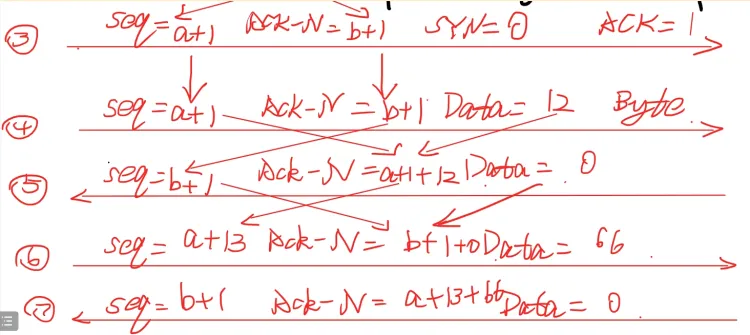 ③ seq=a+1 Ack-N=b+1 SYN=0 ACK=1
④ seq=a+1 Ack-N=b+1 Data=12 Byte
⑤ seq=b+1 Ack-N=a+1+12 Data=0
⑥ seq=a+13 Ack-N=b+1+0 Data=66
⑦ seq=b+1 Ack-N=a+13+66 Data=0